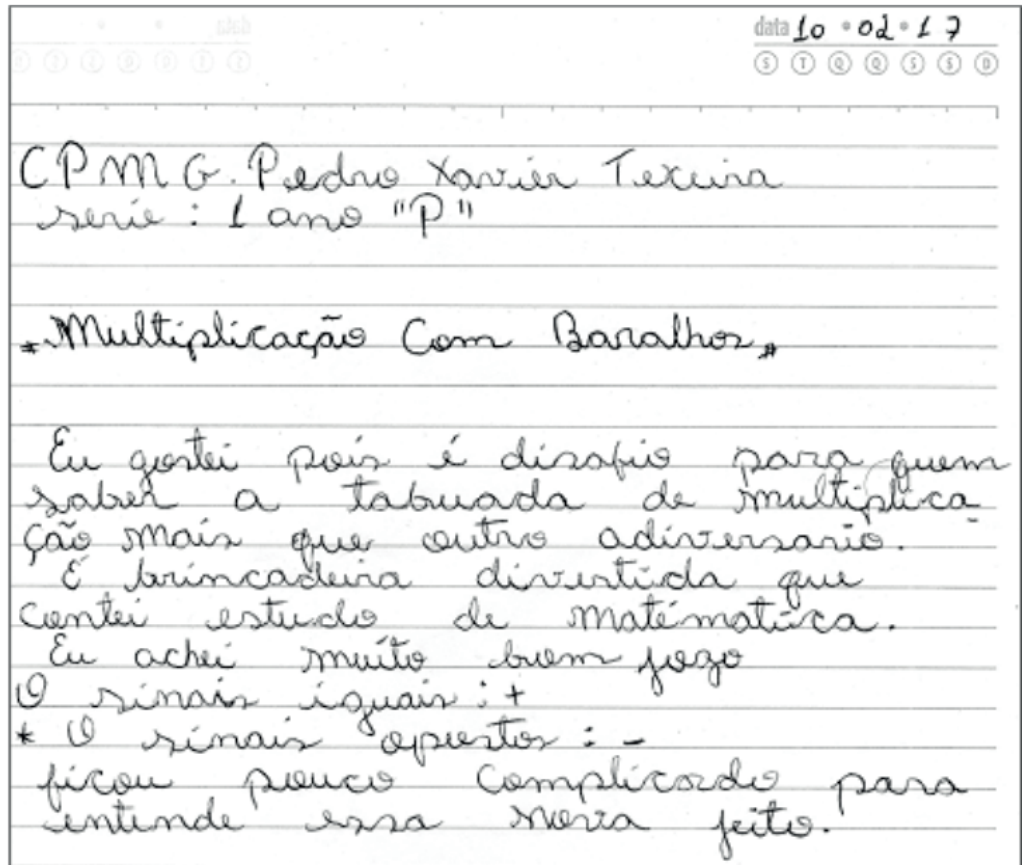 data 10 • 02 • 17
S T Q Q S S D
CPMG. Pedro Xavier Texeira
serie : 1 ano "P"
* Multiplicação Com Baralhos *
Eu gostei pois é disafio para quem
saber a tabuada de multiplica
ção mais que outro adiversario.
É brincadeira divertida que
contei estudo de matématica.
Eu achei muito bom jogo
O sinais iguais : +
* O sinais opostos : -
ficou pouco complicado para
entende essa nova jeito.